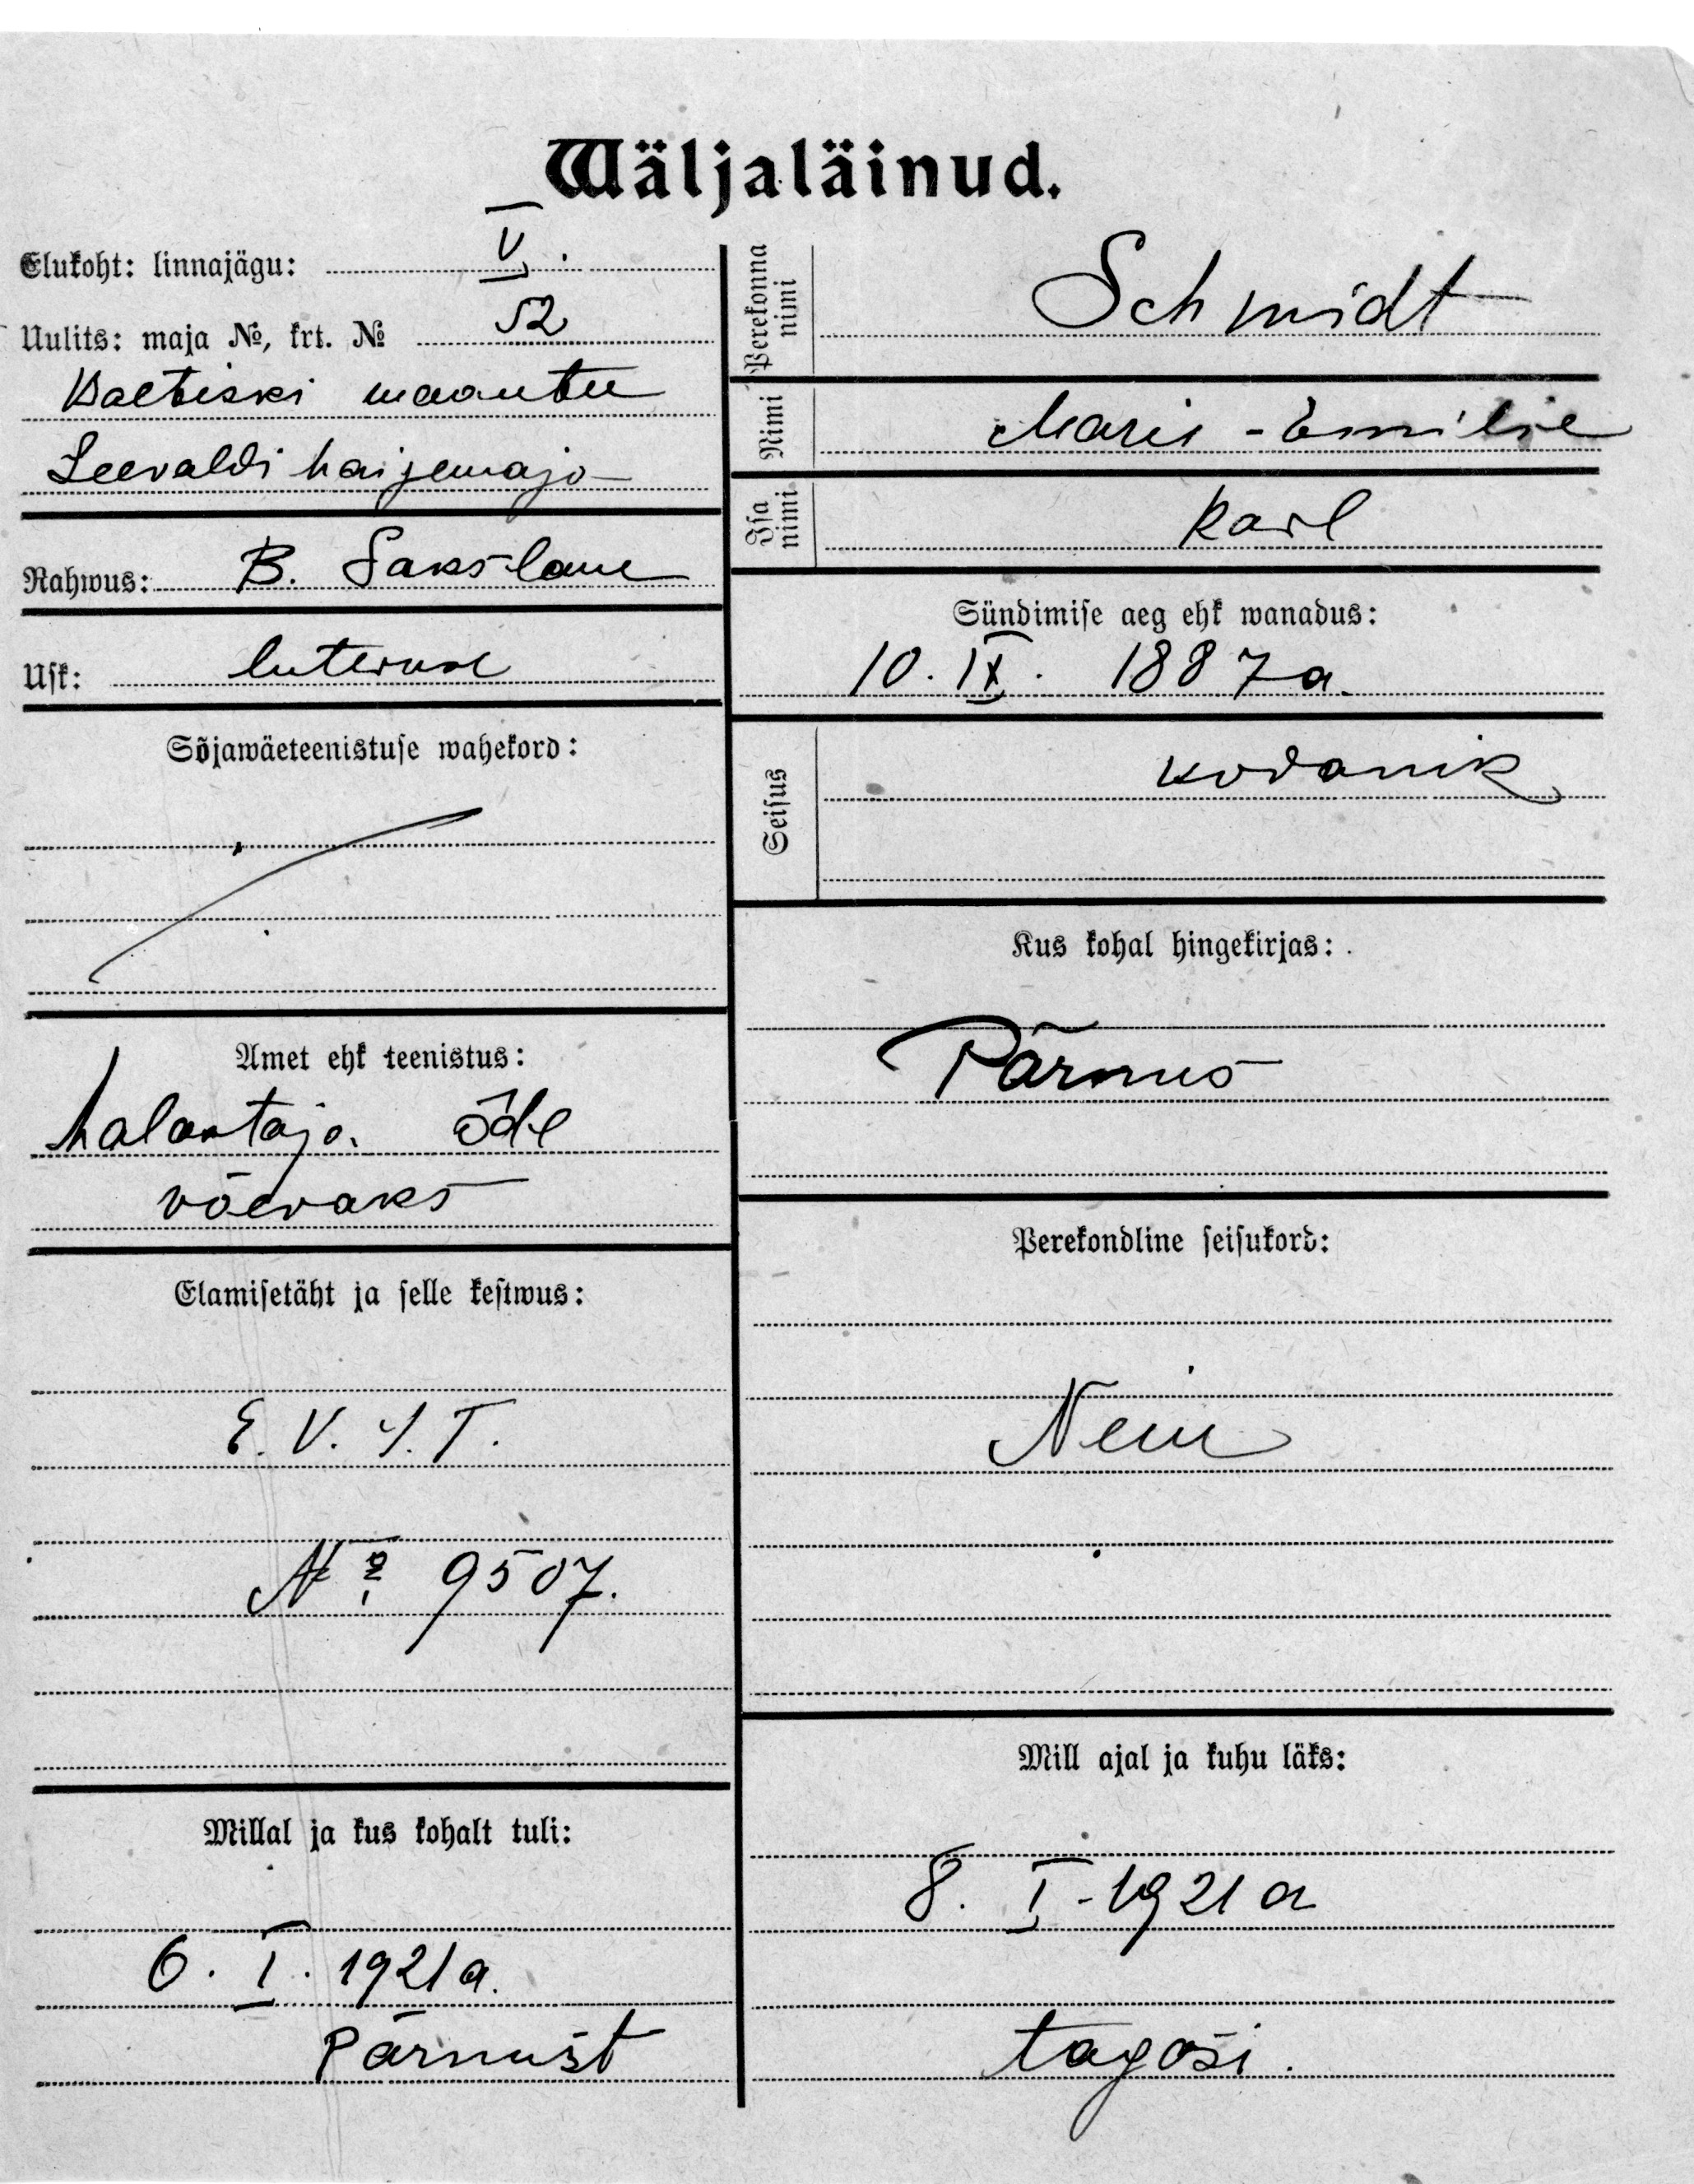 Wäljaläinud.
Elukoht: linnajägu: V.
Uulits: maja №, krt. № 52
Baltiski maantee
Seevaldi haigemaja
Rahwus: B. Sakslane
Usk: luterus
Sõjawäeteenistuse wahekord:
Amet ehk teenistus:
halastaja õde
võeraks
Elamisetäht ja selle kestwus:
E. V. I. T.
№ 9507.
Millal ja kus kohalt tuli:
6. I. 1921 a.
Pärnust
Perekonna nimi
Schmidt
Nimi
Marie-Emilie
Isa nimi
Karl
Sündimise aeg ehk wanadus:
10. IX. 1887 a.
Seisus
kodanik
Kus kohal hingekirjas:
Pärnus
Perekondline seisukord:
Neiu
Mill ajal ja kuhu läks:
8. I - 1921 a
tagasi.